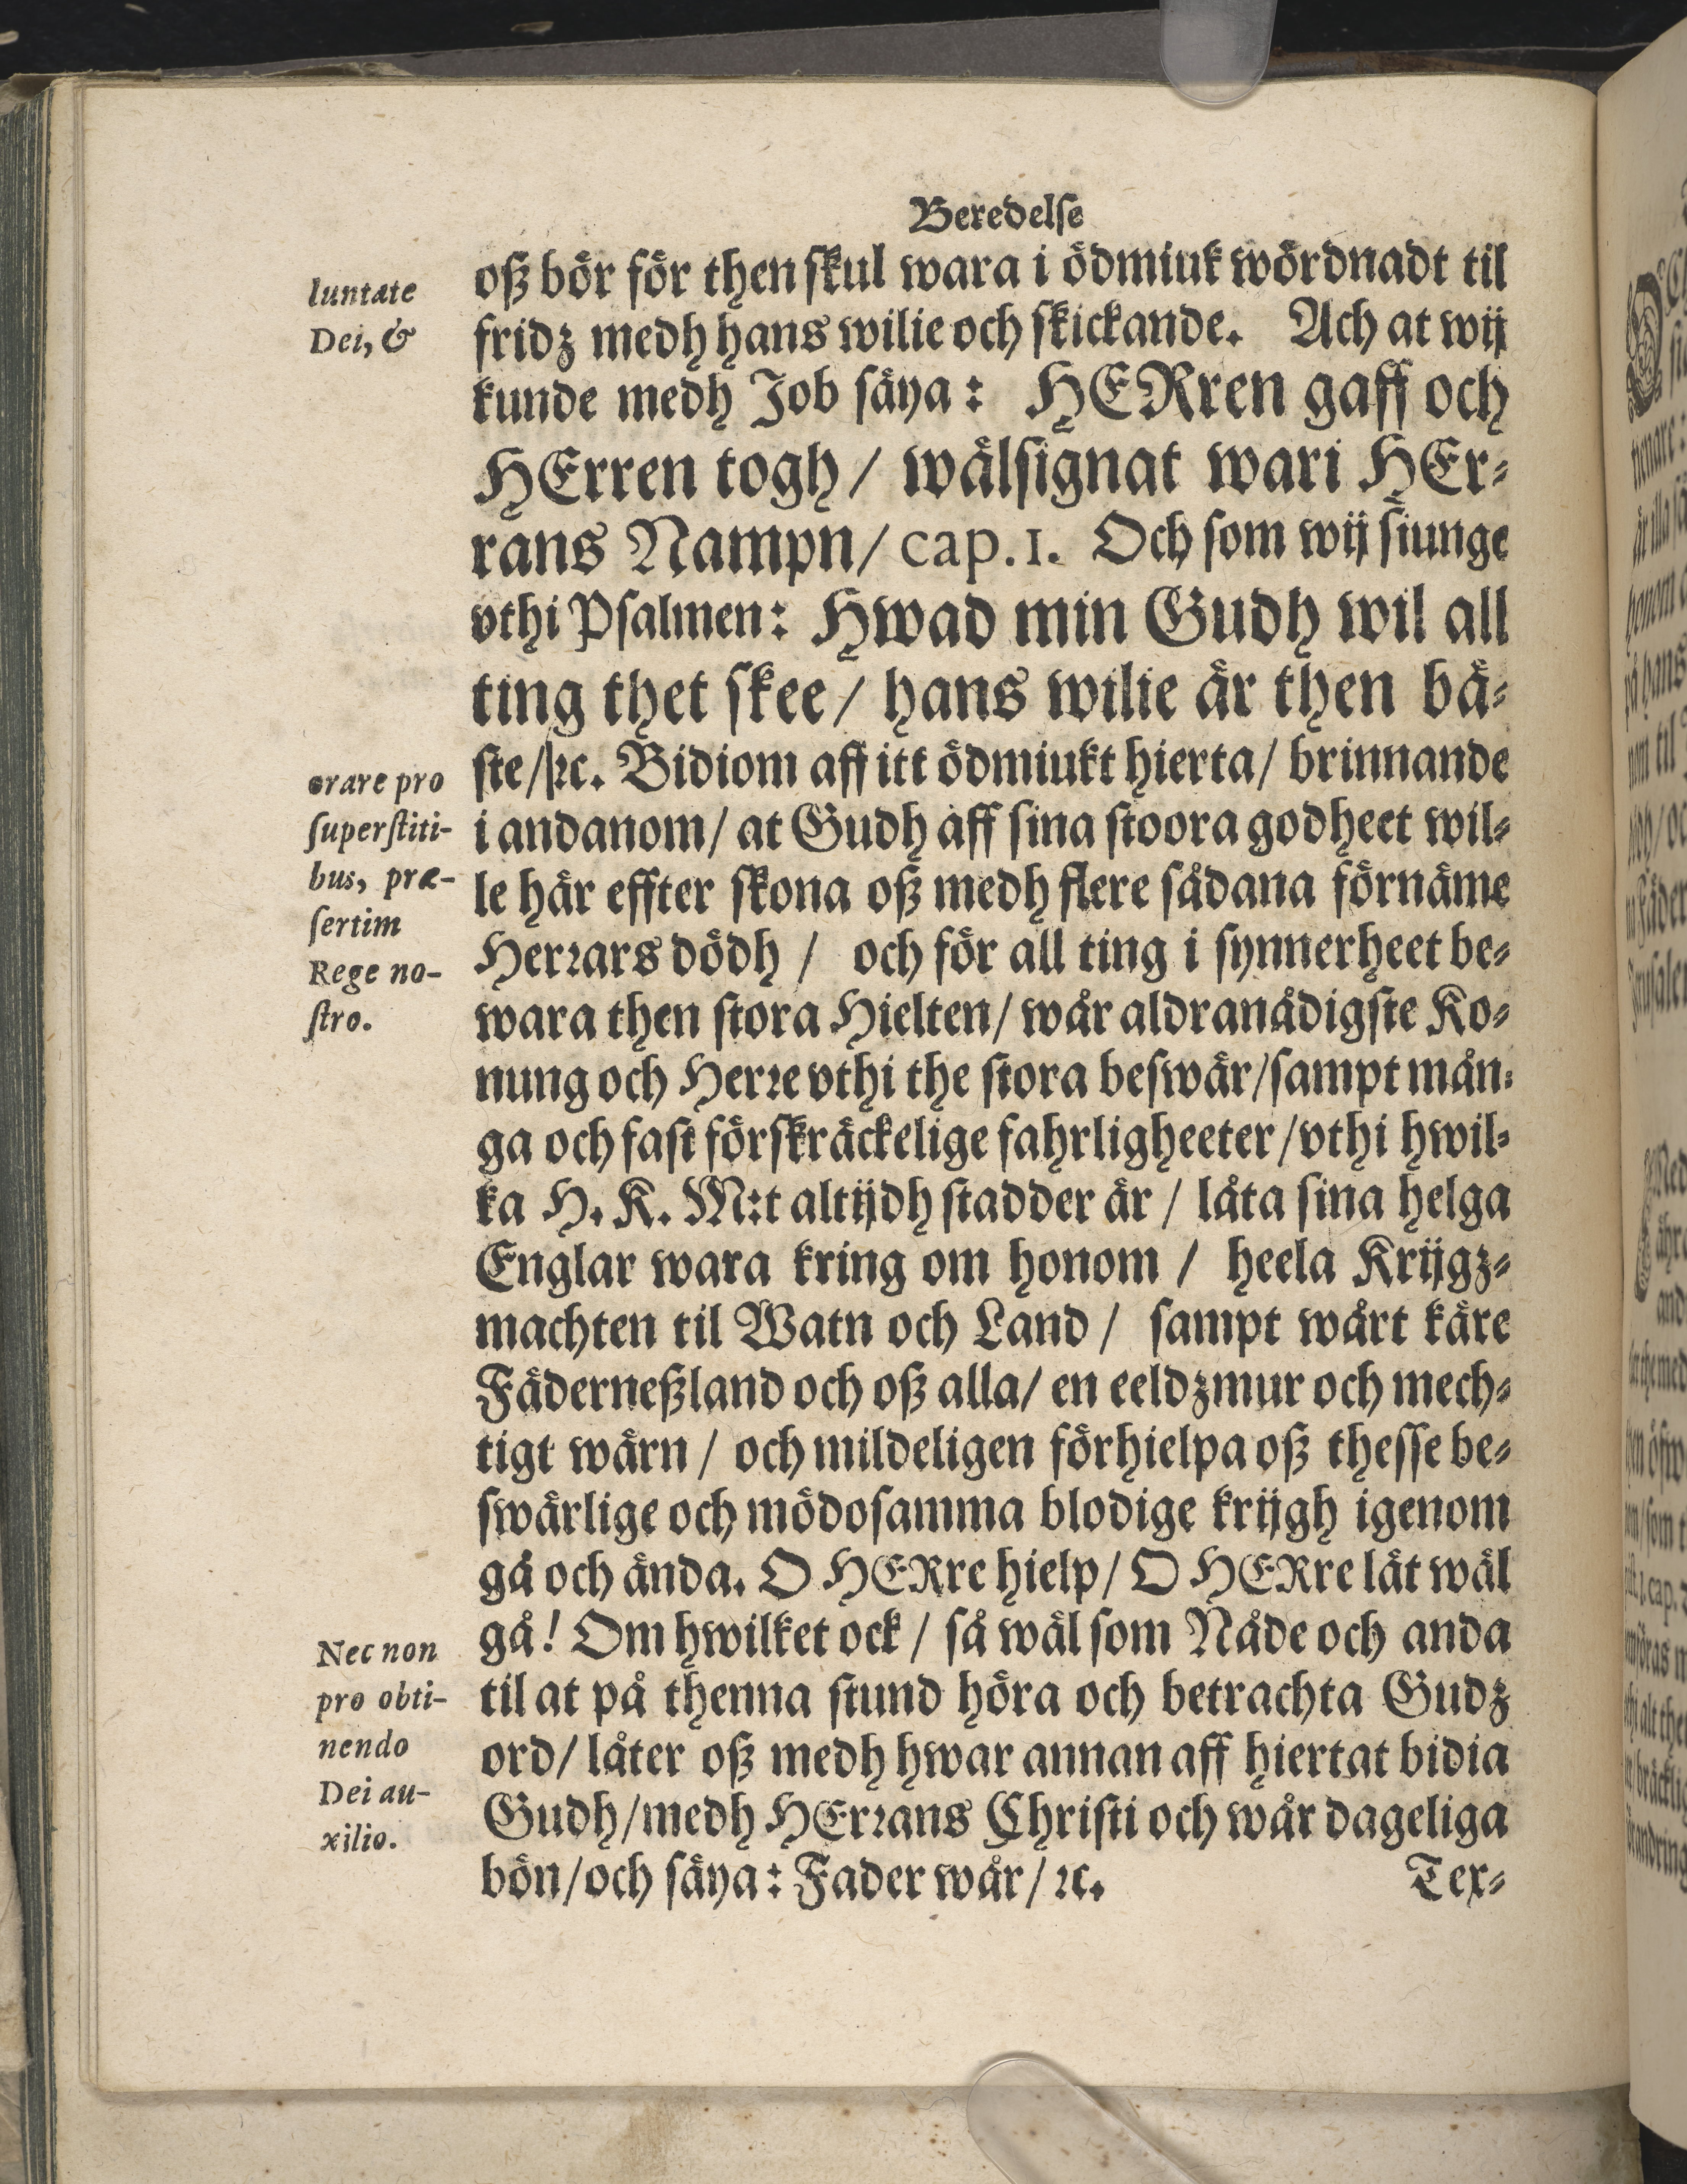 Beredelse
oß bör för then skul wara i ödmiuk wördnadt til
fridz medh hans wilie och skickande. Ach at wij
kunde medh Job säya: HERren gaff och
HErren togh / wälsignat wari HEr-
rans Nampn / cap. 1. Och som wij siunge
vthi Psalmen: Hwad min Gudh wil all
ting thet skee / hans wilie är then bä-
ste / ꝛc. Bidiom aff itt ödmiukt hierta / brinnande
i andanom / at Gudh aff sina stoora godheet wil-
le här effter skona oß medh flere sådana förnäme
Herrars dödh / och för all ting i synnerheet be-
wara then stora Hielten / wår aldranådigste Ko-
nung och Herre vthi the stora beswär / sampt mån-
ga och fast förskräckelige fahrligheeter / vthi hwil-
ka H. K. M:t altijdh stadder är / låta sina helga
Englar wara kring om honom / heela Krijgz-
machten til Watn och Land / sampt wårt käre
Fäderneßland och oß alla / en eeldzmur och mech-
tigt wärn / och mildeligen förhielpa oß thesse be-
swärlige och mödosamma blodige krijgh igenom
gå och ända. O HERre hielp / O HERre låt wäl
gå! Om hwilket ock / så wäl som Nåde och anda
til at på thenna stund höra och betrachta Gudz
ord / låter oß medh hwar annan aff hiertat bidia
Gudh / medh HErrans Christi och wår dageliga
bön / och säya: Fader wår / ꝛc.
Tex-
luntate
Dei, &
orare pro
superstiti-
bus, præ-
sertim
Rege no-
stro.
Nec non
pro obti-
nendo
Dei au-
xilio.